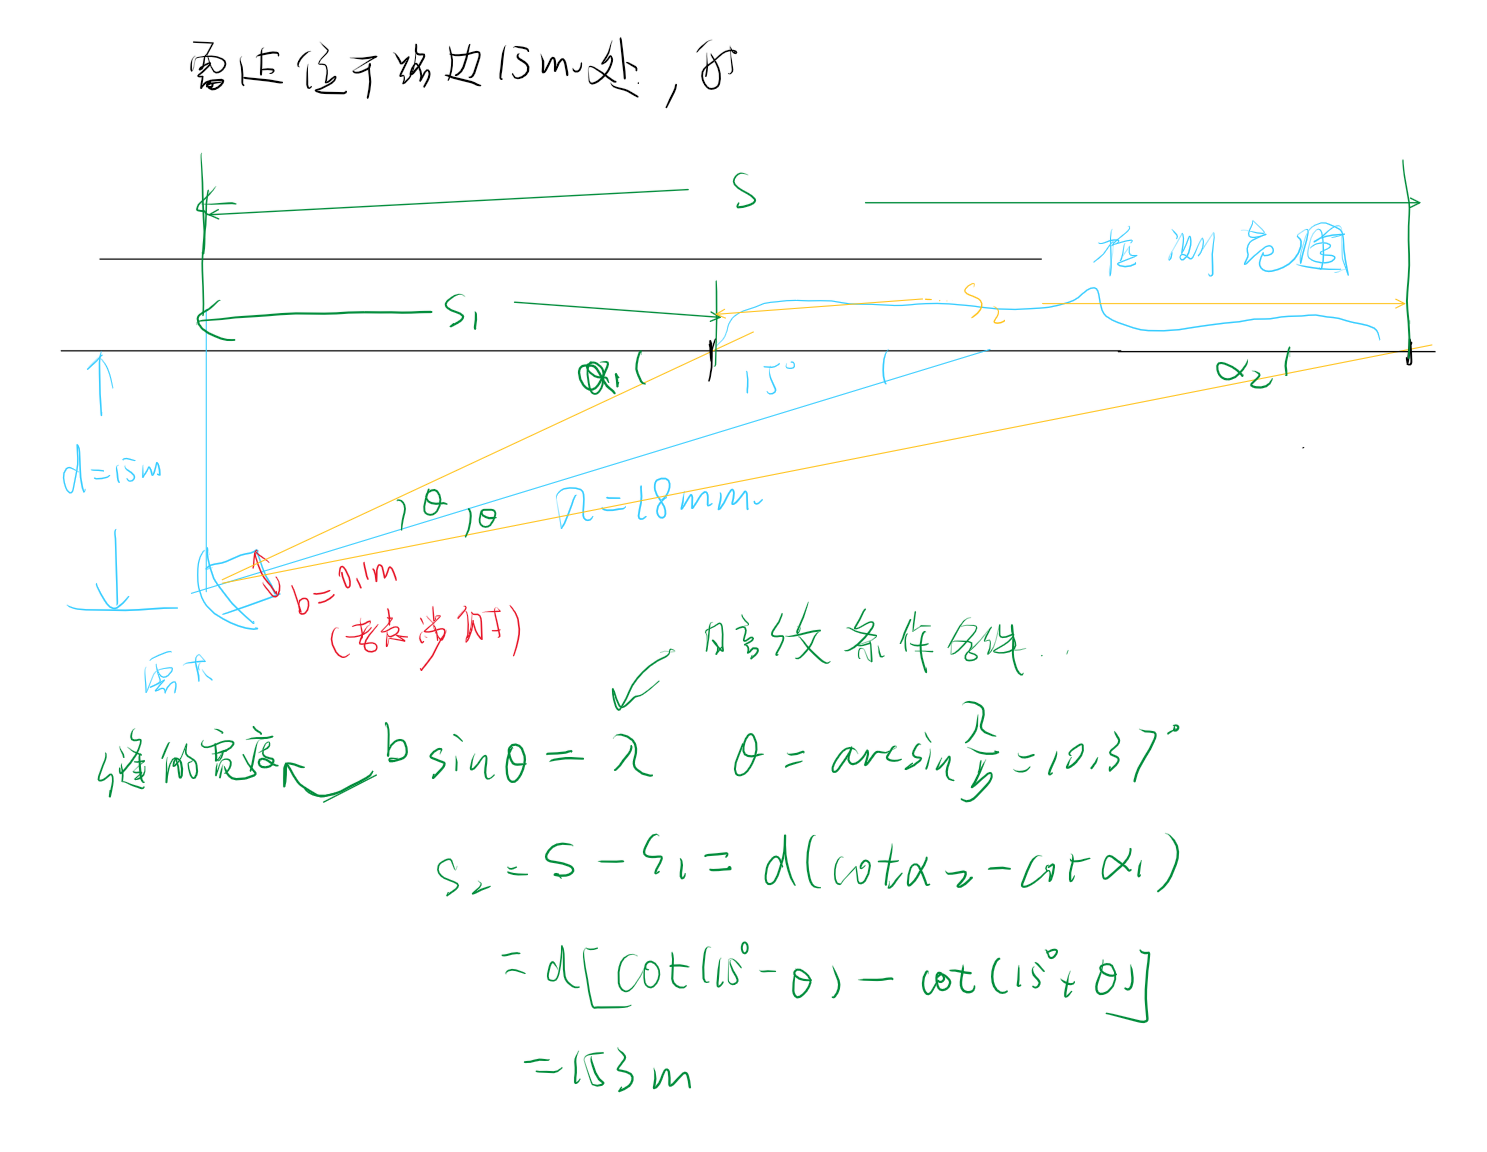 雷达位于路边15m处，射
S
检测范围
S₁
S₂
α₁
15°
α₂
d=15m
θ
θ
λ=18mm.
b=0.1m
(考虑衍射)
雷达
暗纹条件
缝的宽度
b sinθ = λ  θ = arcsin λ/b = 10.37°
S₂ = S - S₁ = d(cotα₂ - cotα₁)
= d[cot(15°-θ) - cot(15°+θ)]
= 153m